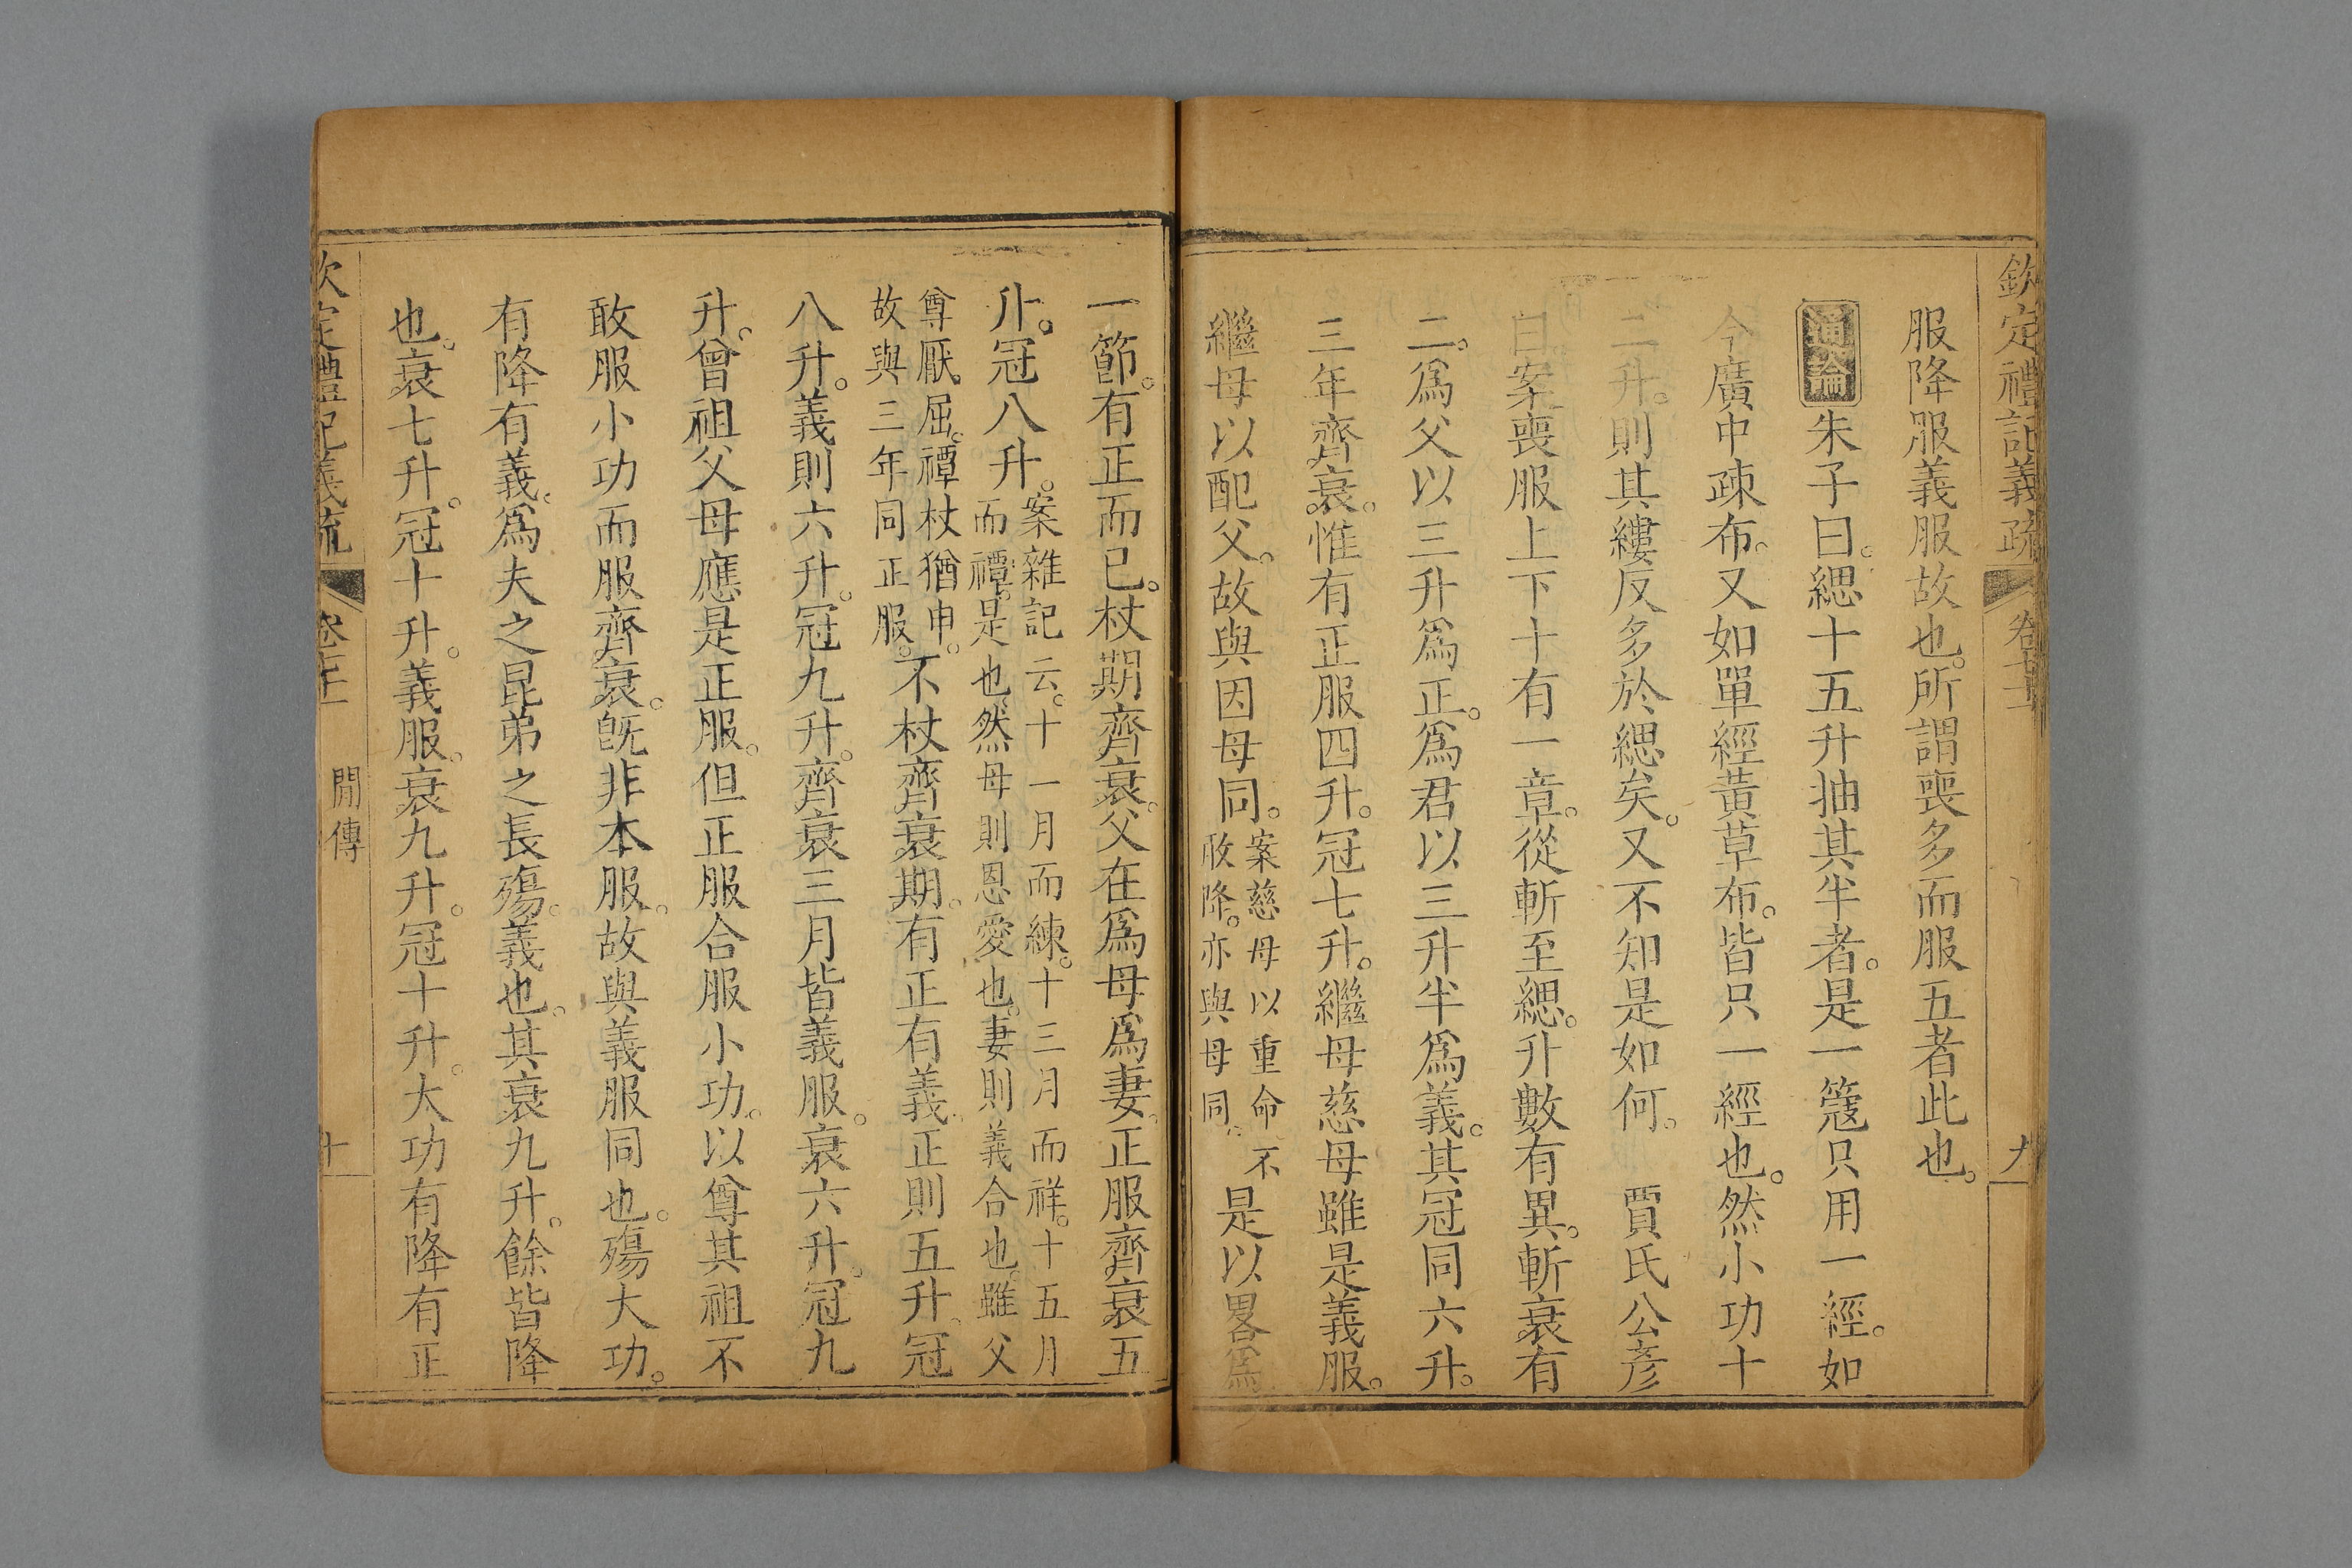 欽定禮記義疏 卷七十二 九
服降服義服故也。所謂喪多而服五者此也。
通論 朱子曰。緦十五升抽其半者。是一簆只用一經。如
今廣中疎布。又如單經黃草布。皆只一經也。然小功十
二升。則其縷反多於緦矣。又不知是如何。 賈氏公彥
曰案喪服上下十有一章。從斬至緦。升數有異。斬衰有
二。爲父以三升爲正。爲君以三升半爲義。其冠同六升。
三年齊衰。惟有正服四升。冠七升。繼母慈母雖是義服。
繼母以配父。故與因母同。
案慈母以重命不
敢降。亦與母同。
是以畧爲
一節。有正而已。杖期齊衰。父在爲母爲妻。正服齊衰五
升。冠八升。
案雜記云。十一月而練。十三月而祥。十五月
而禫。是也。然母則恩愛也。妻則義合也。雖父
尊厭屈。禫杖猶申。
故與三年同正服。
不杖齊衰期。有正有義。正則五升冠
八升。義則六升。冠九升。齊衰三月皆義服。衰六升。冠九
升。曾祖父母應是正服。但正服合服小功。以尊其祖不
敢服小功而服齊衰。旣非本服。故與義服同也。殤大功。
有降有義。爲夫之昆弟之長殤。義也。其衰九升。餘皆降
也。衰七升。冠十升。義服。衰九升。冠十升。大功有降有正
欽定禮記義疏 間傳 十